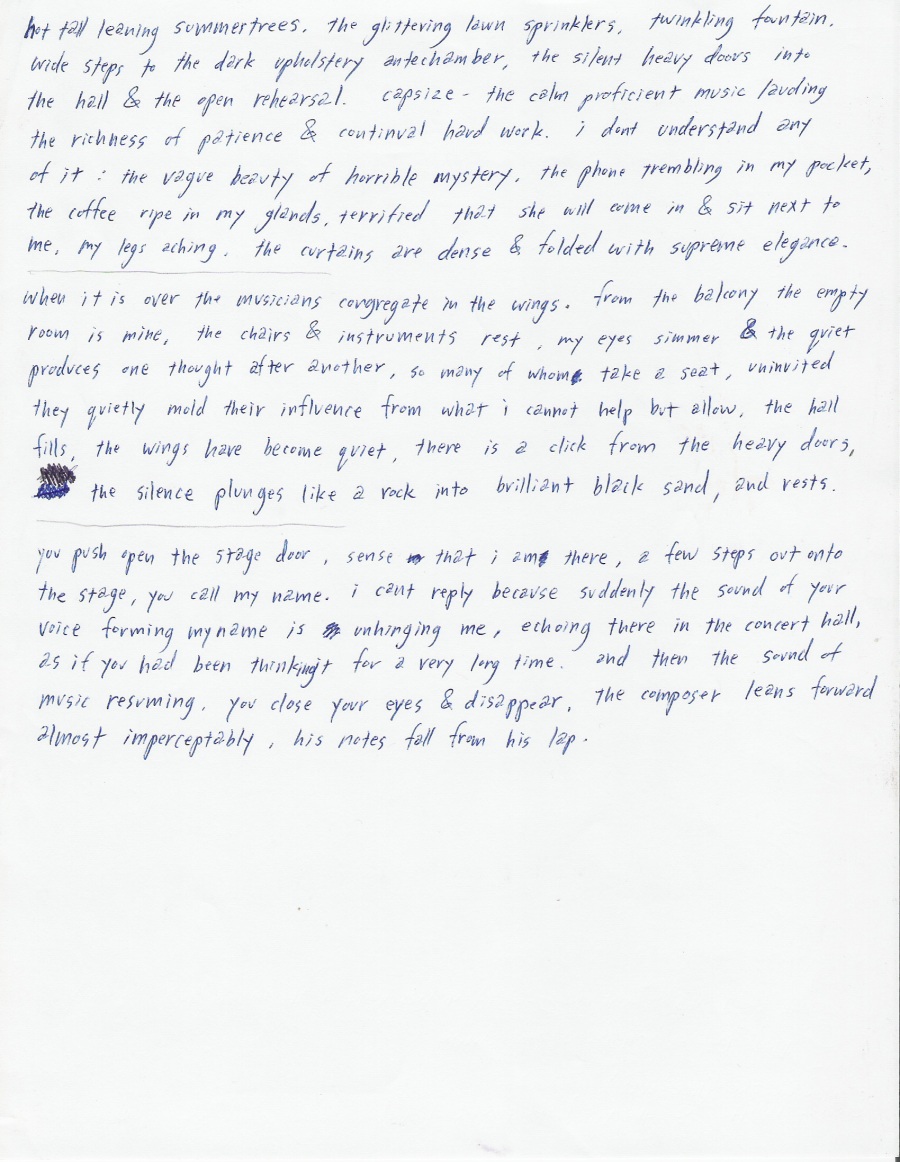 hot tall leaning summertrees. the glittering lawn sprinklers, twinkling fountain.
wide steps to the dark upholstery antechamber, the silent heavy doors into
the hall & the open rehearsal. capsize - the calm proficient music lauding
the richness of patience & continual hard work. i dont understand any
of it : the vague beauty of horrible mystery. the phone trembling in my pocket,
the coffee ripe in my glands, terrified that she will come in & sit next to
me, my legs aching. the curtains are dense & folded with supreme elegance.
when it is over the musicians congregate in the wings. from the balcony the empty
room is mine, the chairs & instruments rest, my eyes simmer & the quiet
produces one thought after another, so many of whom take a seat, uninvited
they quietly mold their influence from what i cannot help but allow, the hall
fills, the wings have become quiet, there is a click from the heavy doors,
the silence plunges like a rock into brilliant black sand, and rests.
you push open the stage door, sense that i am there, a few steps out onto
the stage, you call my name. i cant reply because suddenly the sound of your
voice forming my name is unhinging me, echoing there in the concert hall,
as if you had been thinkingit for a very long time. and then the sound of
music resuming. you close your eyes & disappear. the composer leans forward
almost imperceptably, his notes fall from his lap.